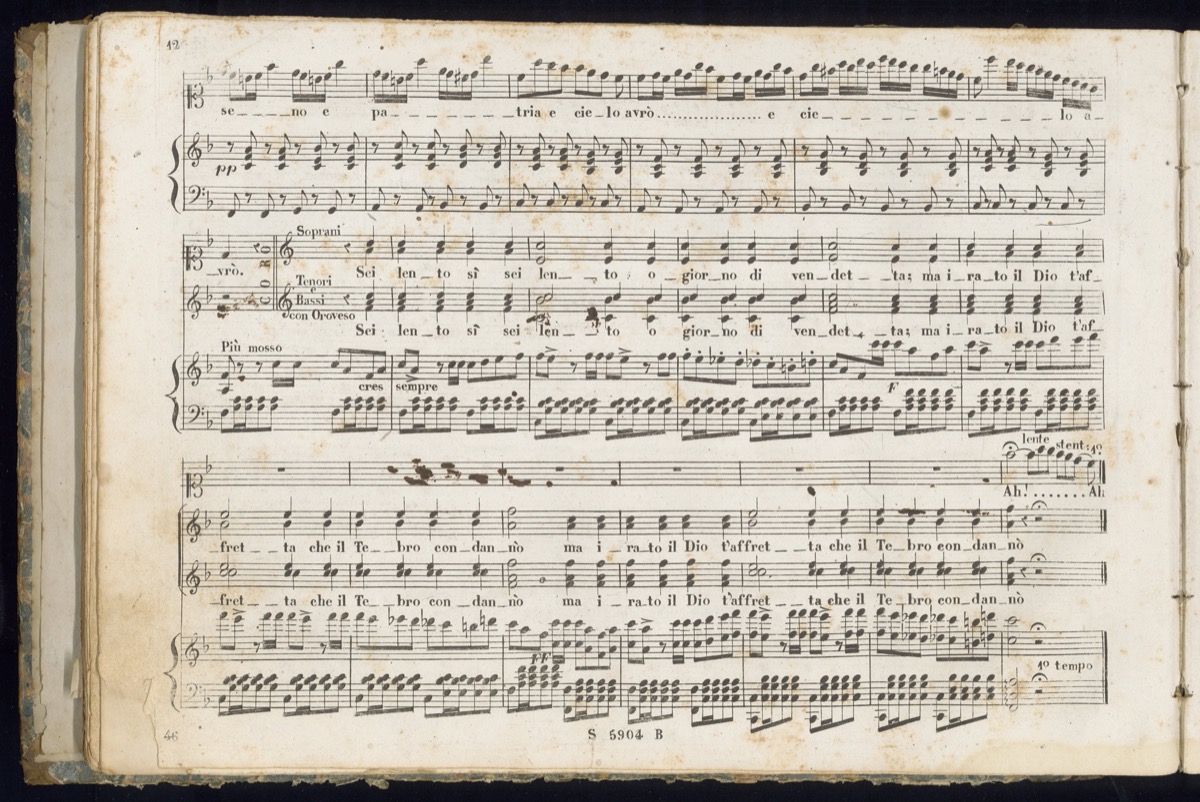 12
se_____no e pa________tria e cie_lo avrò.................... e cie___________________lo a_
pp
Soprani
CORO
_vrò. Sei len_to sì sei len___to o gior_no di ven_det__ta; ma i_ra_to il Dio t'af_
Tenori
e
Bassi
con Oroveso
Sei len_to sì sei len___to o gior_no di ven_det__ta; ma i_ra_to il Dio t'af_
Più mosso
cres sempre
F
lente stent: 1º
Ah!........Ah
_fret__ta che il Te__bro con_dan_nò ma i_ra_to il Dio t'affret__ta che il Te_bro con_dan_nò
_fret__ta che il Te__bro con_dan_nò ma i_ra_to il Dio t'affret__ta che il Te_bro con_dan_nò
FF
1º tempo
46
S 5904 B